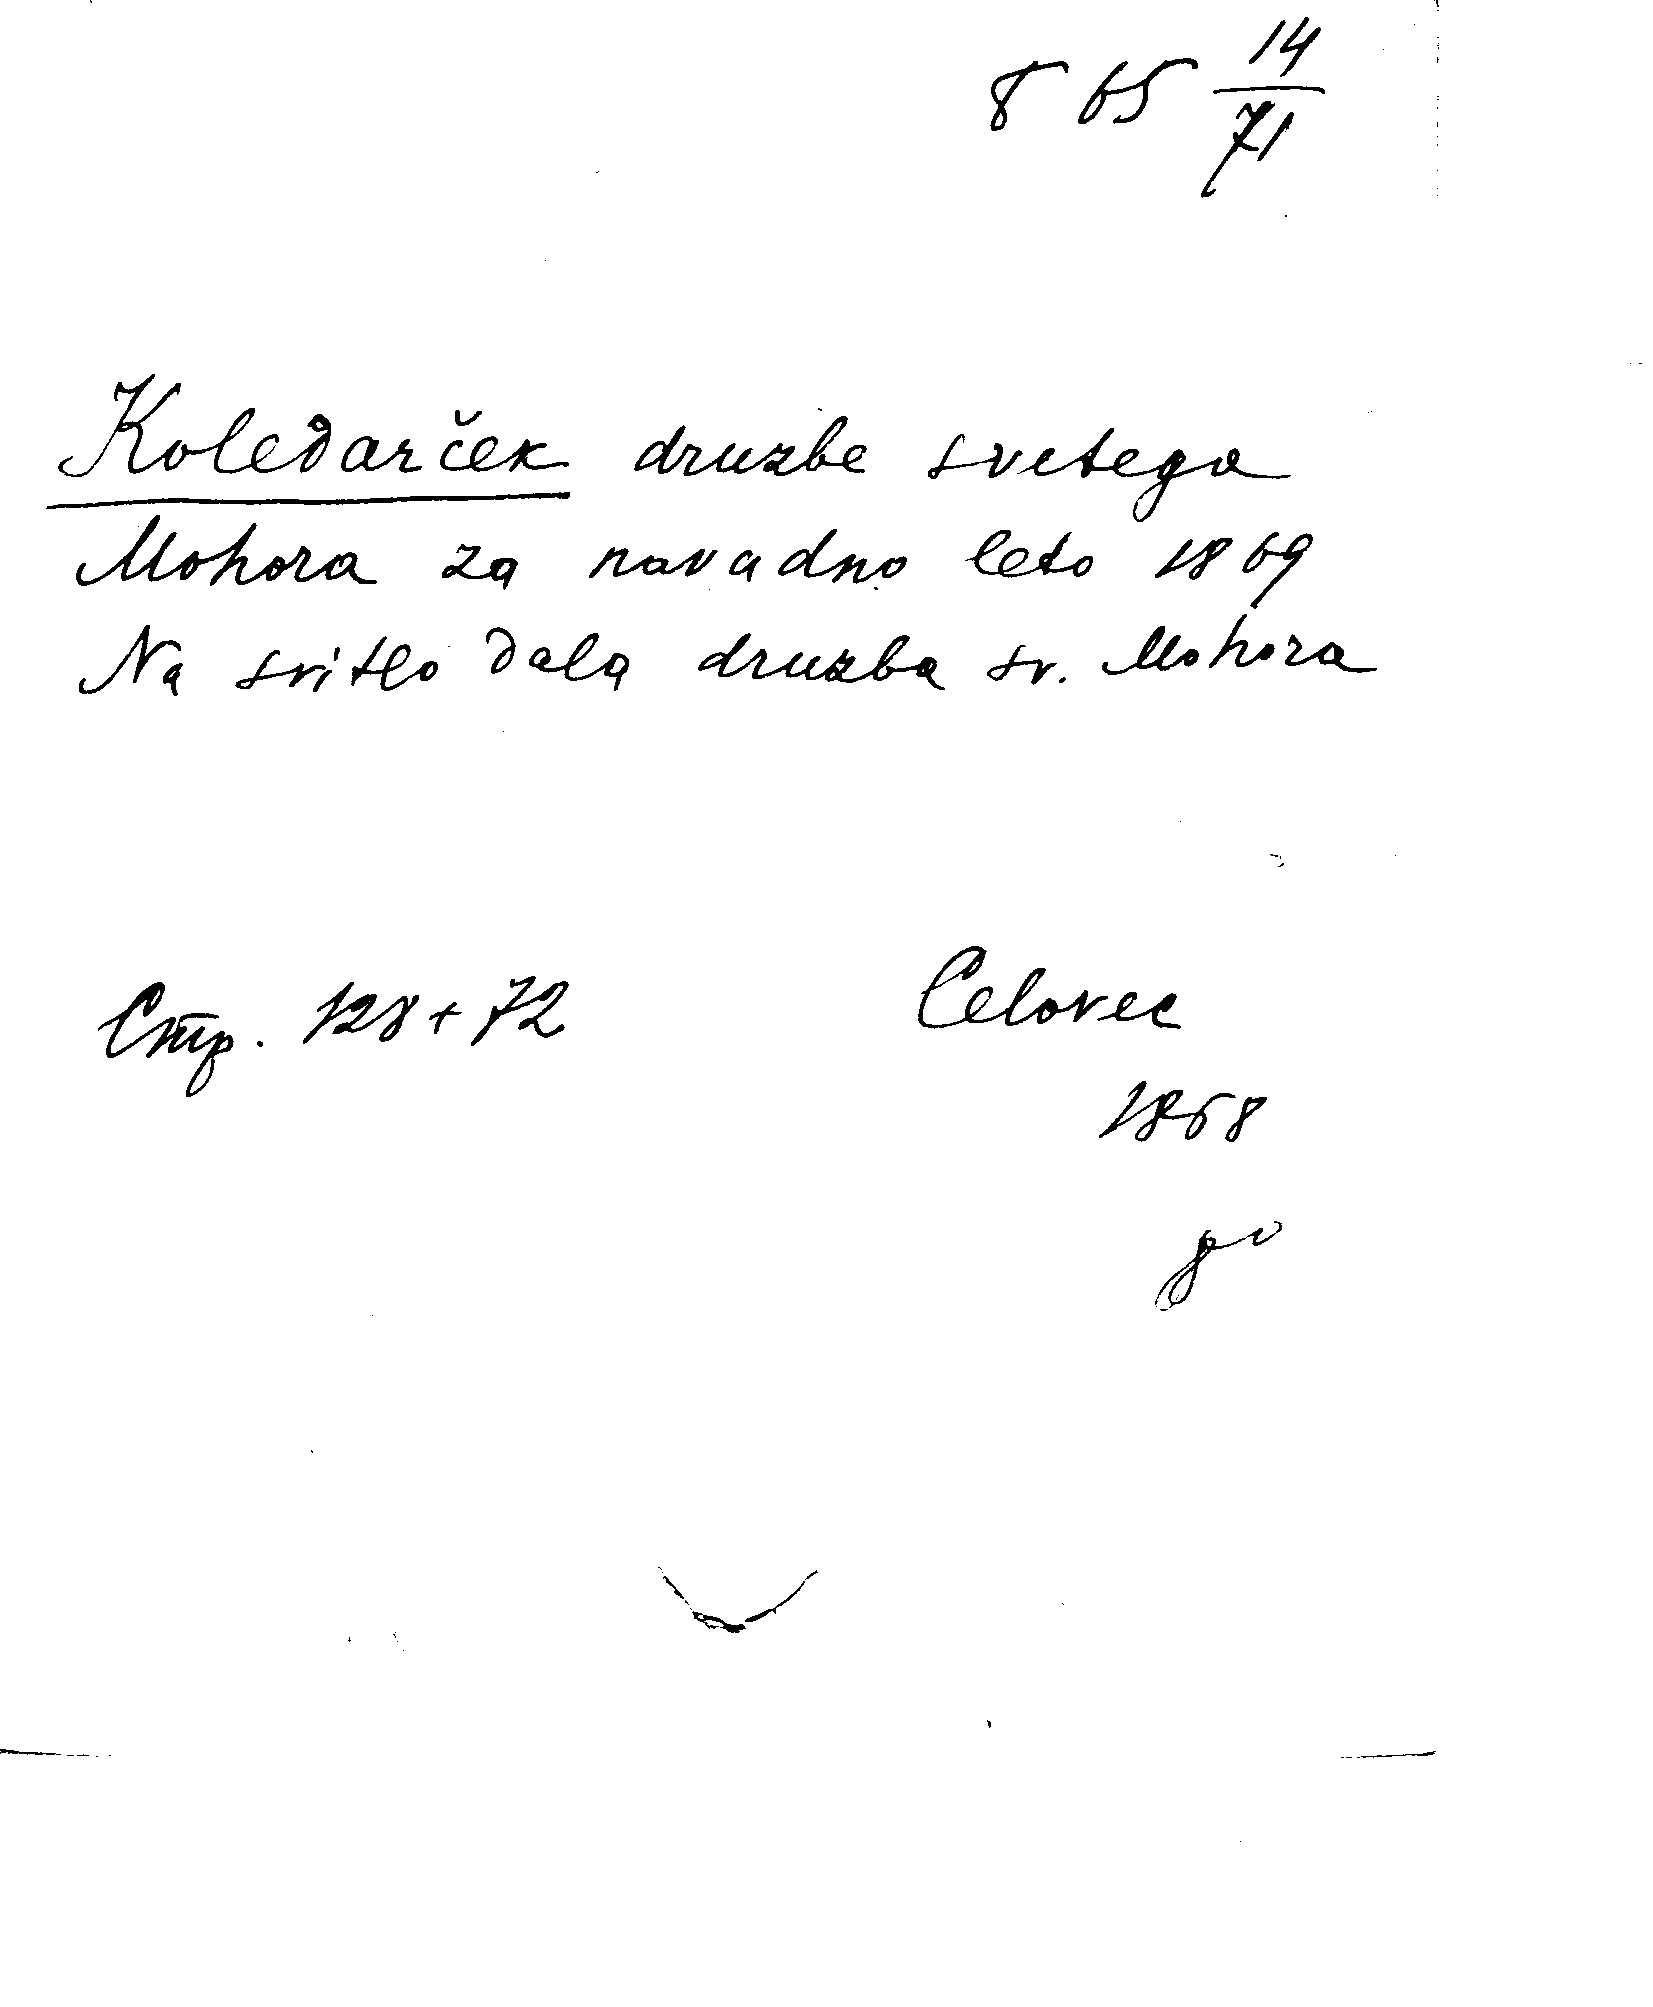 8 65 14/71
Koledarček druzbe svetega
Mohora za navadno leto 1869
Na svitlo dala druzba sv. Mohora
Стр. 128+72 Celovec
1868